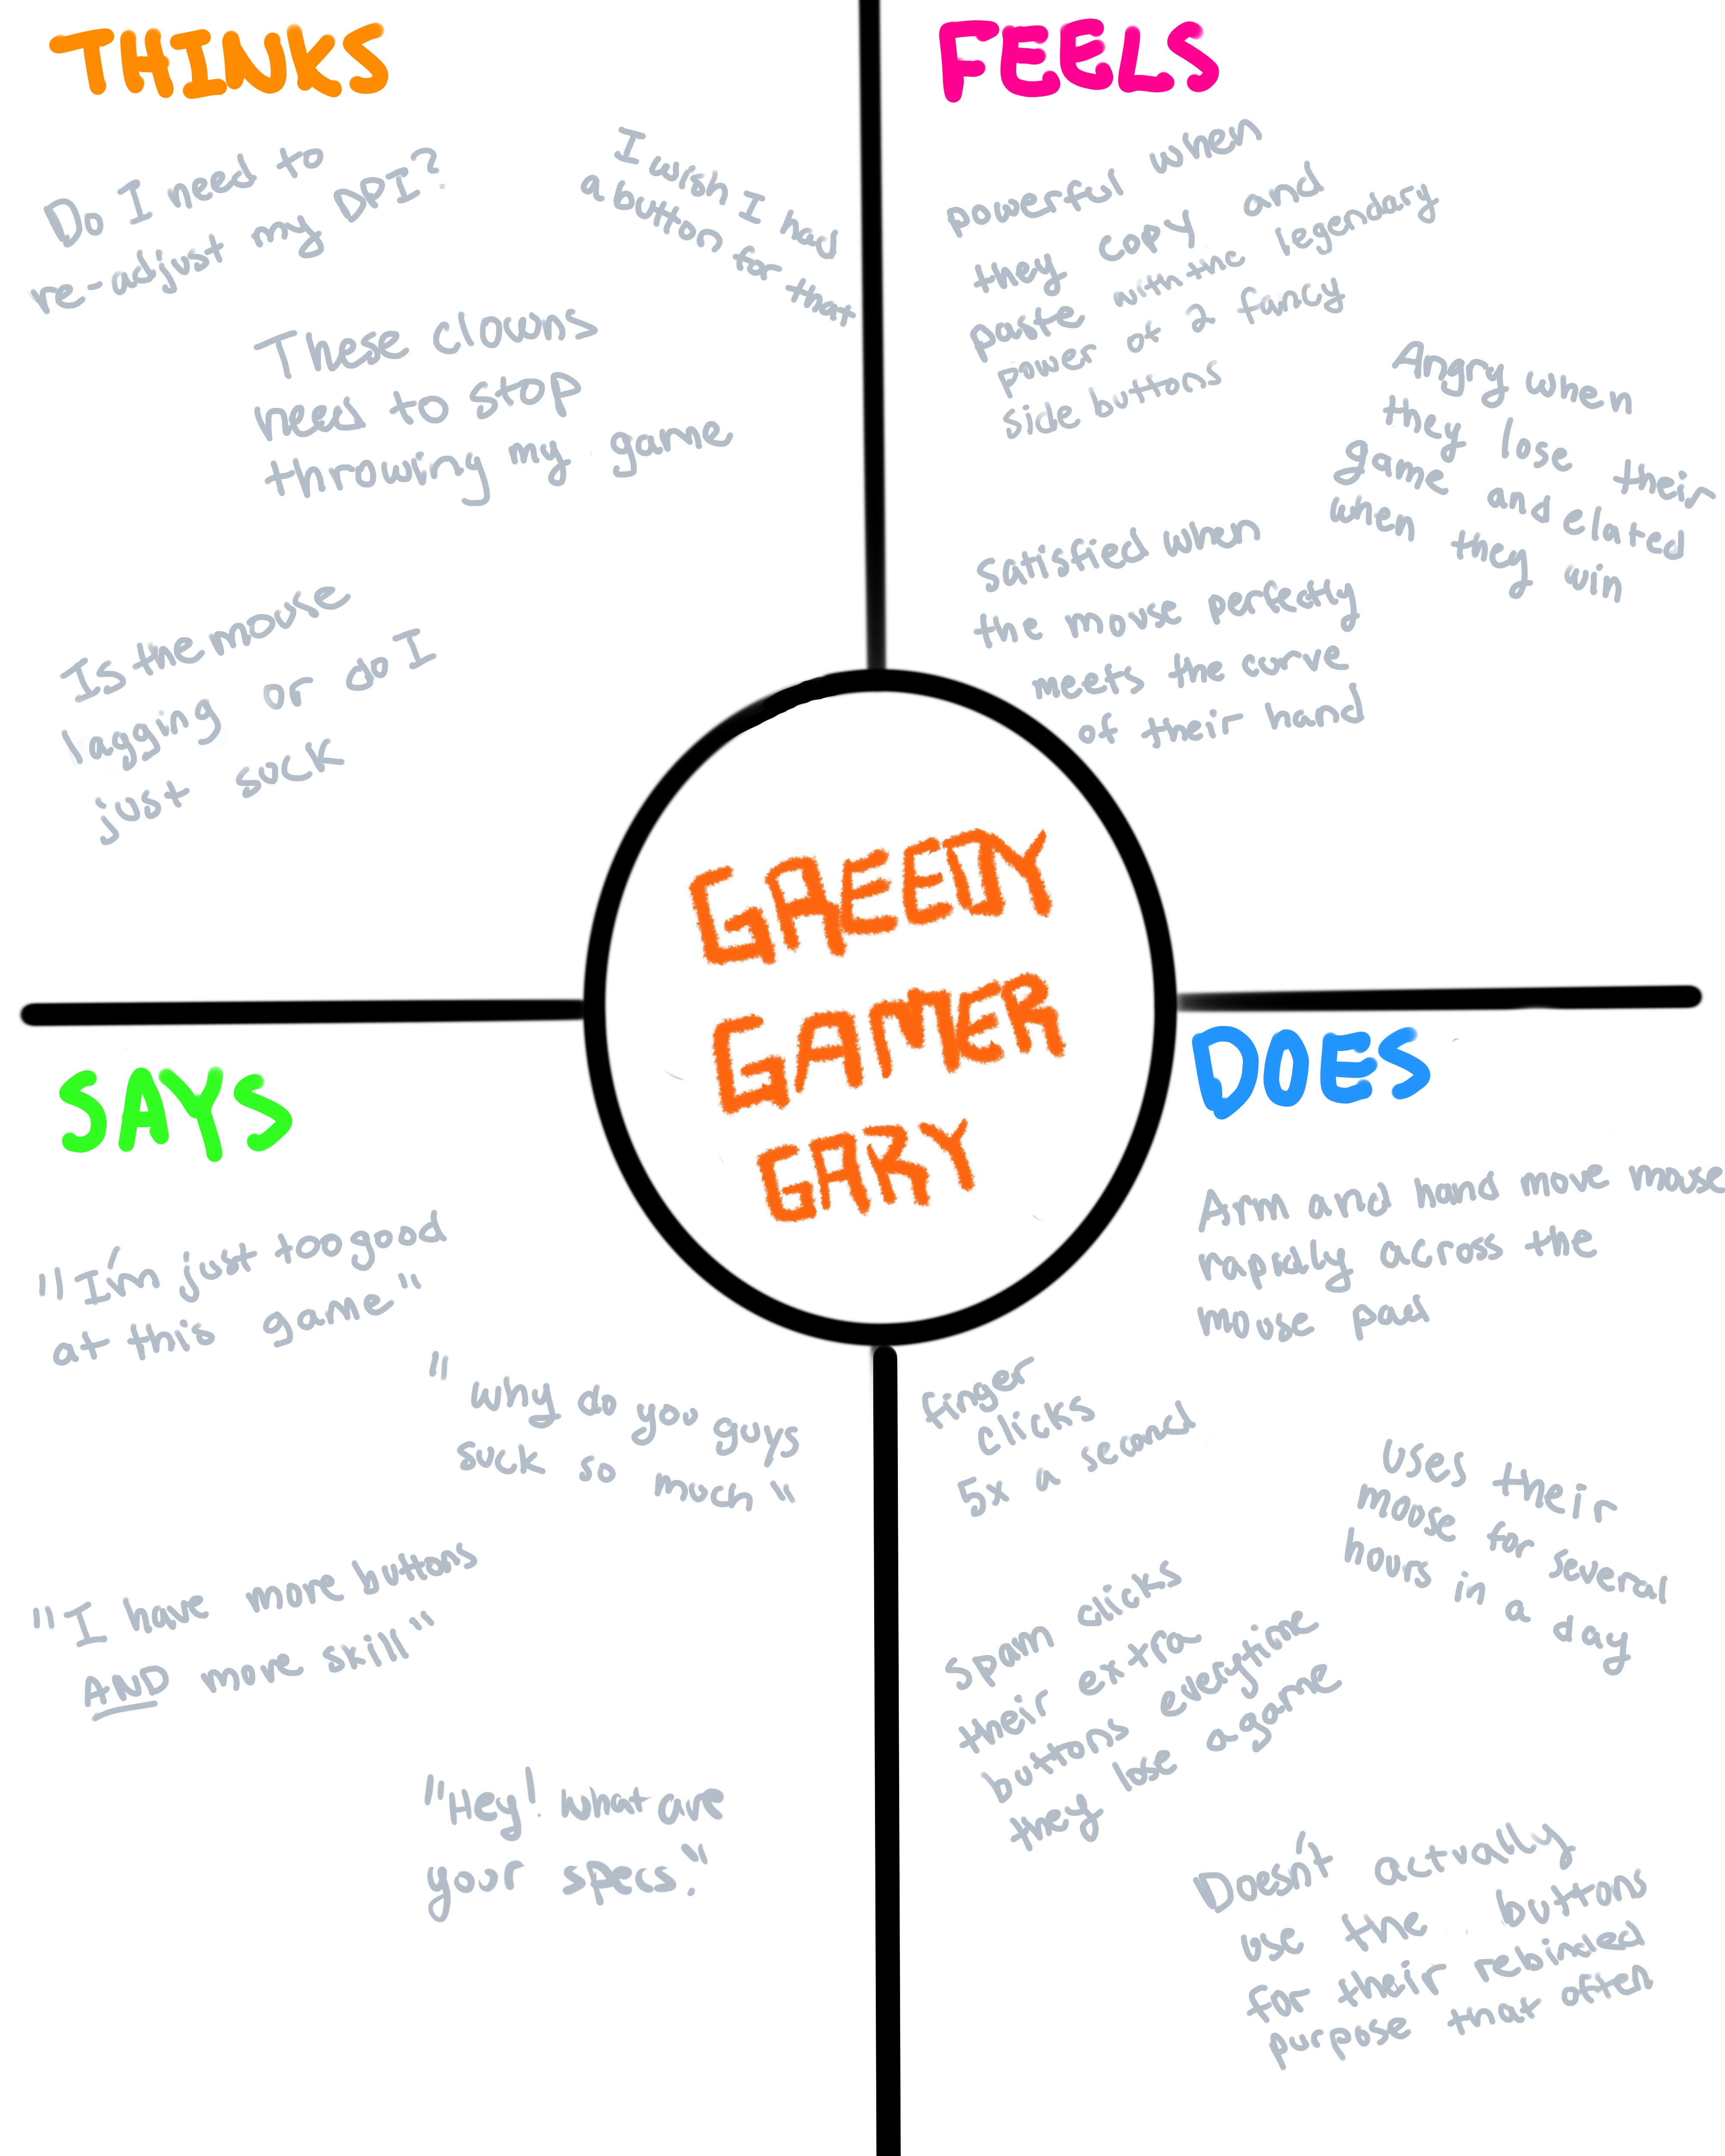 THINKS
Do I need to
re-adjust my DPI?
I wish I had
a button for that
These clowns
need to stop
throwing my game
Is the mouse
lagging or do I
just suck
FEELS
powerful when
they copy and
paste with the legendary
power of 2 fancy
side buttons
Angry when
they lose their
game and elated
when they win
Satisfied when
the mouse perfectly
meets the curve
of their hand
GREEDY
GAMER
GARY
SAYS
"I'm just too good
at this game"
"why do you guys
suck so much"
"I have more buttons
AND more skill"
"Hey! What are
your specs."
DOES
Arm and hand move mouse
rapidly across the
mouse pad
Finger
clicks
5x a second
Uses their
mouse for several
hours in a day
Spam clicks
their extra
buttons everytime
they lose a game
Doesn't actually
use the buttons
for their rebinded
purpose that often